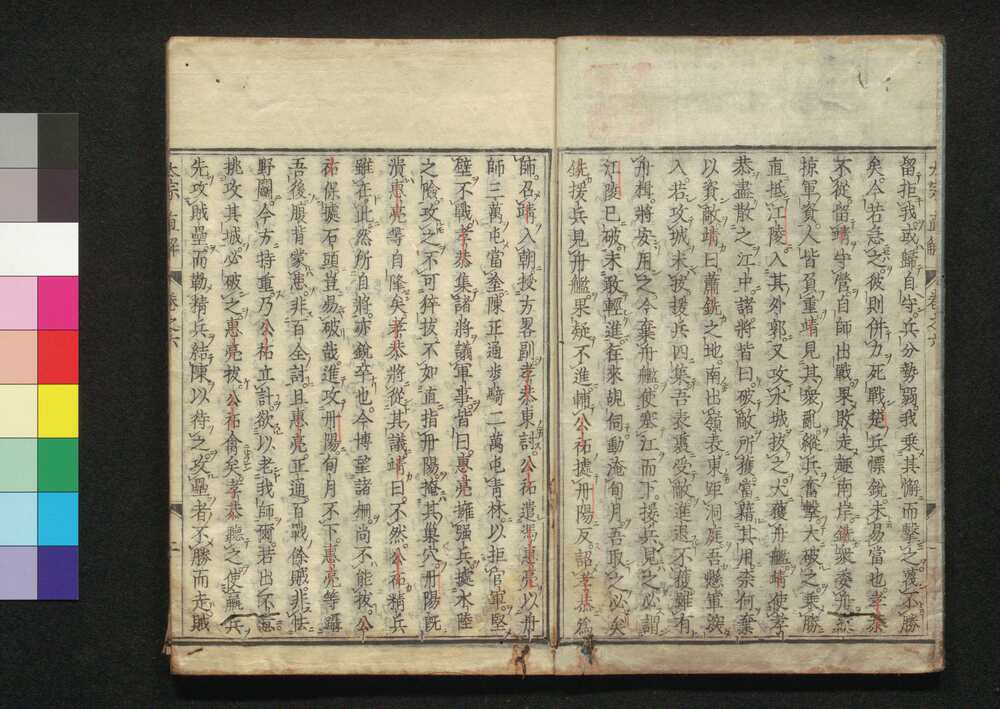 留拒我或歸自守兵分勢弱我乗其懈而撃之蔑不勝
矣今若急之彼則併力死戰楚兵慓銳未易當也孝恭
不從留靖守營自師出戰果敗走趣南岸銑衆委舟
掠軍資人皆負重靖見其衆亂縱兵奮擊大破之乗勝
直抵江陵入其外郭又攻水城抜之大獲舟艦靖使孝
恭盡散之江中諸將皆曰破敵所獲當藉其用柰何棄
以資敵靖曰蕭銑之地南出嶺表東距洞庭吾懸軍深
入若攻城未抜援兵四集吾表裏受敵進退不獲雖有
舟楫將安用之今棄舟艦使塞江而下援兵見之必謂
江陵已破未敢輕進往來覘伺動淹旬月吾取之必矣
銑援兵見舟艦果疑不進輔公祏據丹陽反詔孝恭爲
師召靖入朝授方畧副孝恭東討公祏遣馮惠亮以舟
師三萬屯當塗陳正通歩騎二萬屯青林以拒官軍堅
壁不戰孝恭集諸將議軍事皆曰惠亮擁强兵據水陸
之險攻之不可猝抜不如直指丹陽掩其巢穴丹陽旣
潰惠亮等自降矣孝恭將從其議靖曰不然公祏精兵
雖在此然所自將亦銳卒也今博望諸柵尚不能抜公
祏保據石頭豈易破哉進攻丹陽旬月不下惠亮等躡
吾後腹背蒙患非百全計且惠亮正通百戰餘賊非怯
野鬬今方持重乃公祏立計欲以老我師爾若出不意
挑攻其城必破之惠亮抜公祏禽矣孝恭聽之使羸兵
先攻賊壘而勒精兵結陳以待之攻壘者不勝而走賊
直解